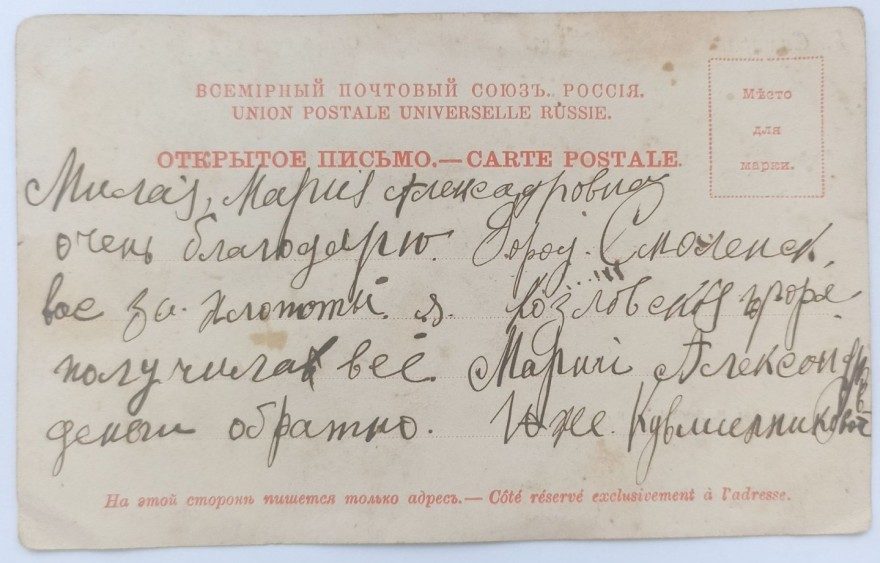 ВСЕМІРНЫЙ ПОЧТОВЫЙ СОЮЗЪ. РОССІЯ.
UNION POSTALE UNIVERSELLE RUSSIE.
Мѣсто
для
марки.
ОТКРЫТОЕ ПИСЬМО.—CARTE POSTALE.
Милая, Мария Александровна
очень благодарю
вас за хлопоты. я
получила всё
деньги обратно.
Город. Смоленск,
Козловская гора
Марии Александров
На этой сторонѣ пишется только адресъ.— Côté réservé exclusivement à l'adresse.